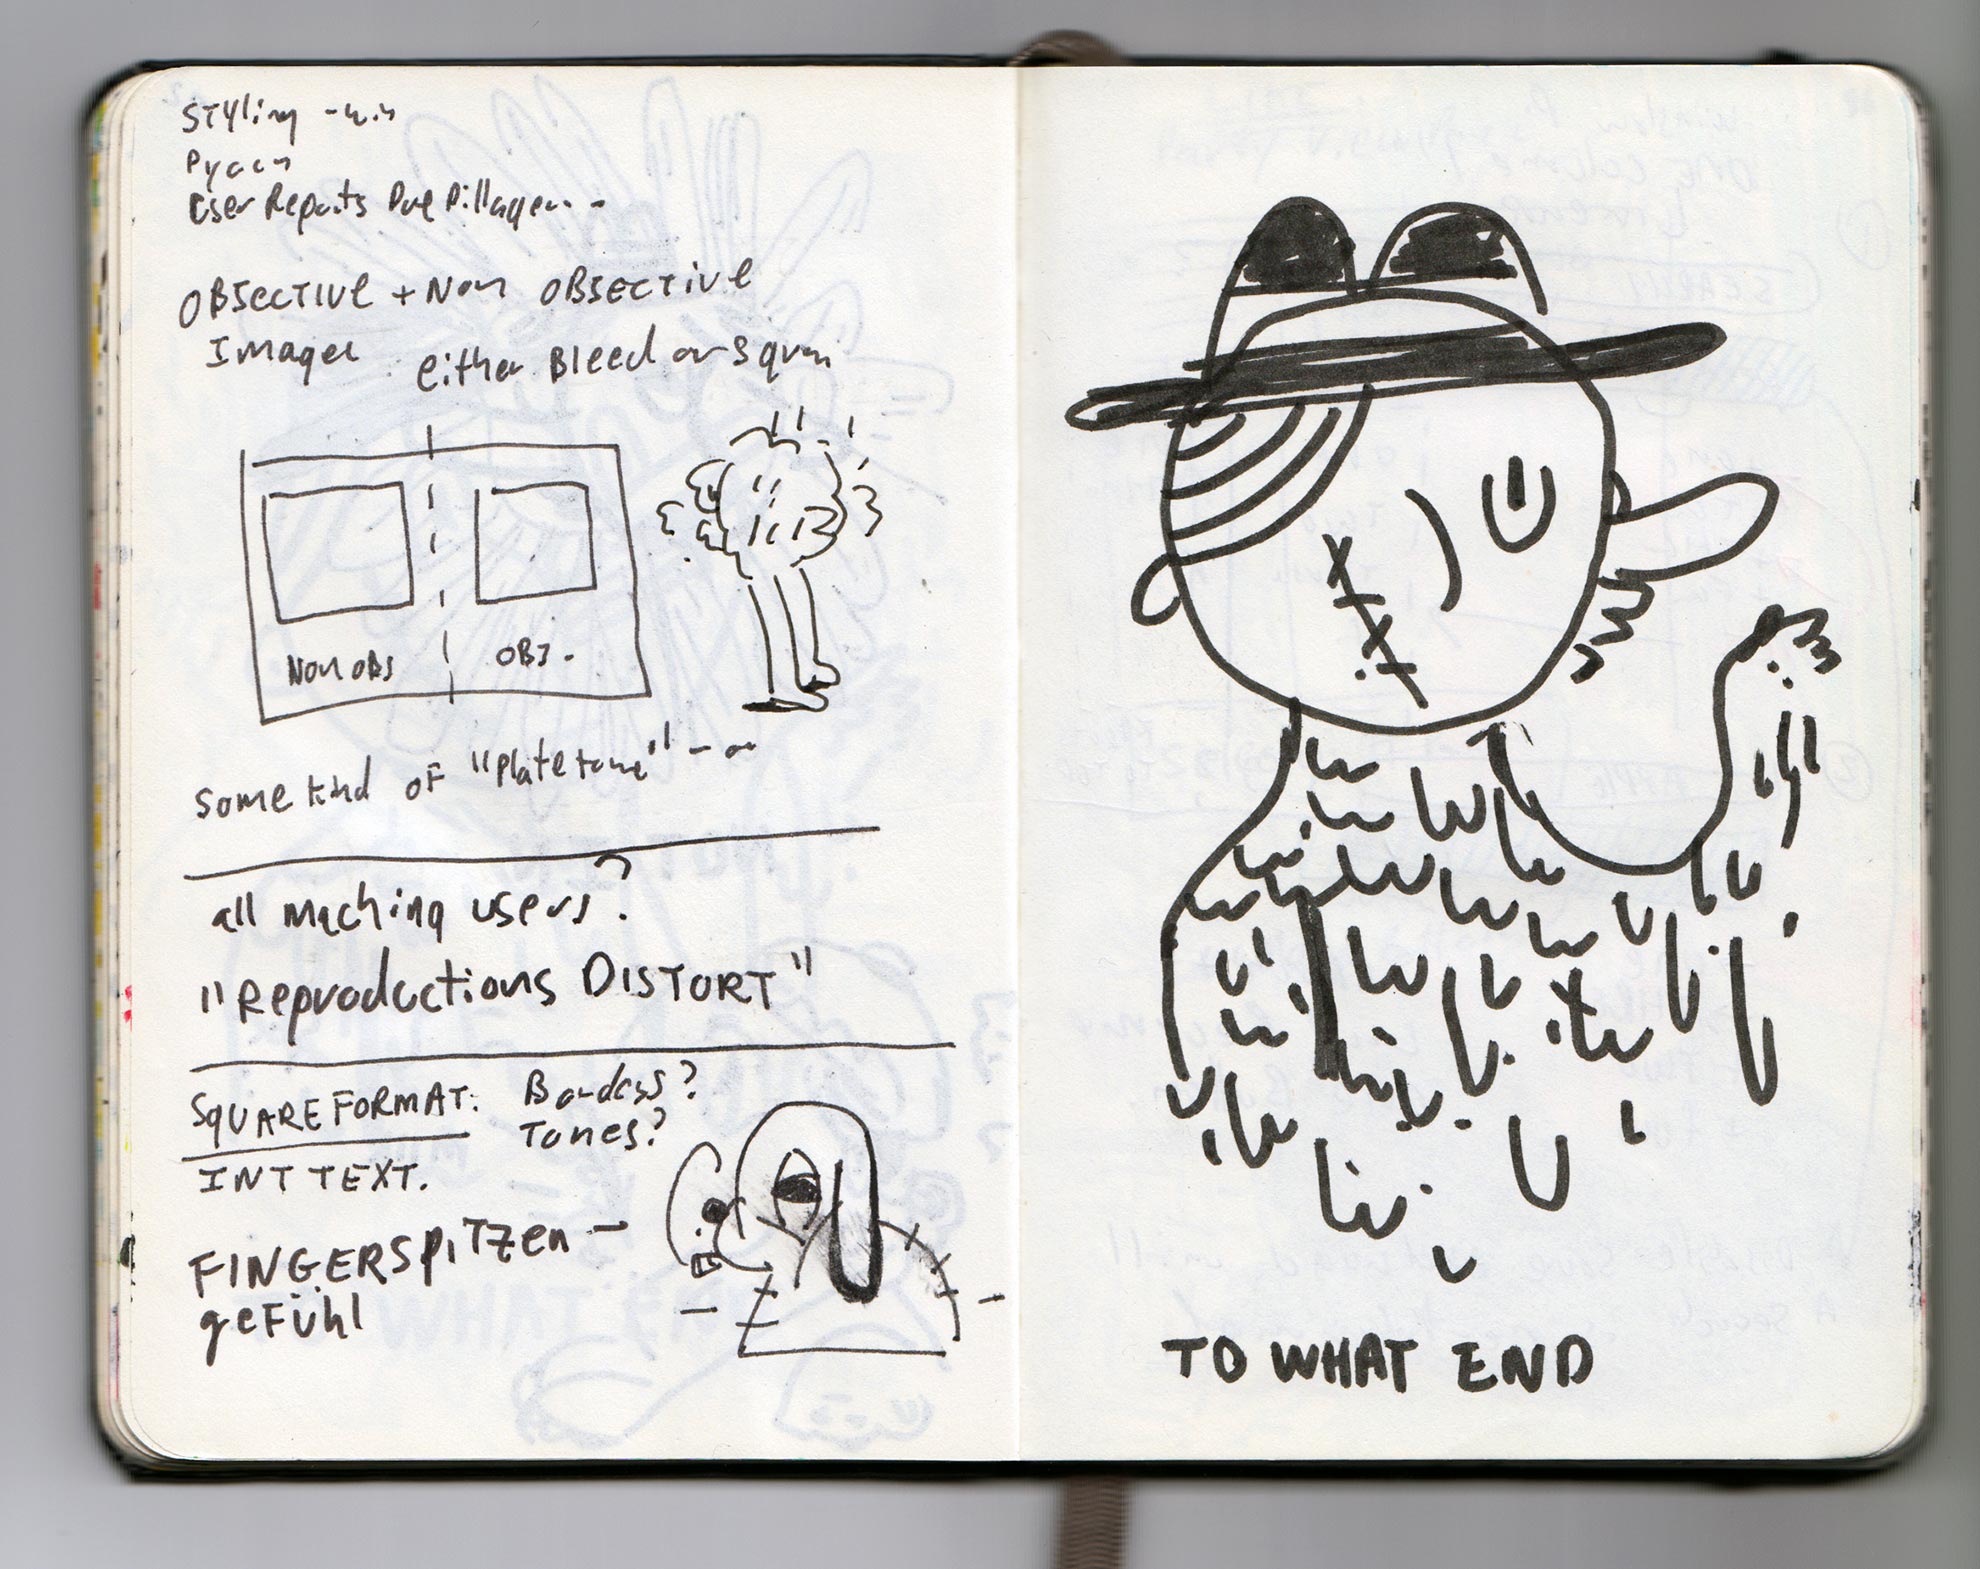 STYling
User Reports
OBJECTIVE + Non OBJECTIVE
Images either Bleed or square
Non OBJ OBJ.
some kind of "plate tone" - or
all maching users?
"Reproductions DISTORT"
SQUARE FORMAT:
Tones?
INT TEXT.
FINGERSpiTZen -
geFühl
TO WHAT END